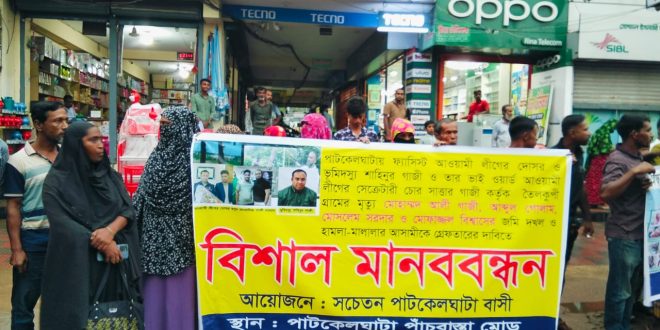 TECNO
TECNO
TECNO
oppo
Rina Telecom
SIBL
vivo
TECNO
পাটকেলঘাটায় ফ্যাসিস্ট আওয়ামী লীগের দোসর ও
ভূমিদস্যু শাহিনুর গাজী ও তার ভাই ওয়ার্ড আওয়ামী
লীগের সেক্রেটারী চোর সাত্তার গাজী কর্তৃক তৈলকুপী
গ্রামের মৃত্যু মোহাম্মদ আলী গাজী, আব্দুল গোলাম,
মোসলেম সরদার ও মোফাজ্জল বিশ্বাসের জমি দখল ও
হামলা-মালালার আসামীকে গ্রেফতারের দাবিতে
বিশাল মানববন্ধন
আয়োজনে : সচেতন পাটকেলঘাটা বাসী
স্থান : পাটকেলঘাটা পাঁচরাস্তা মোড়